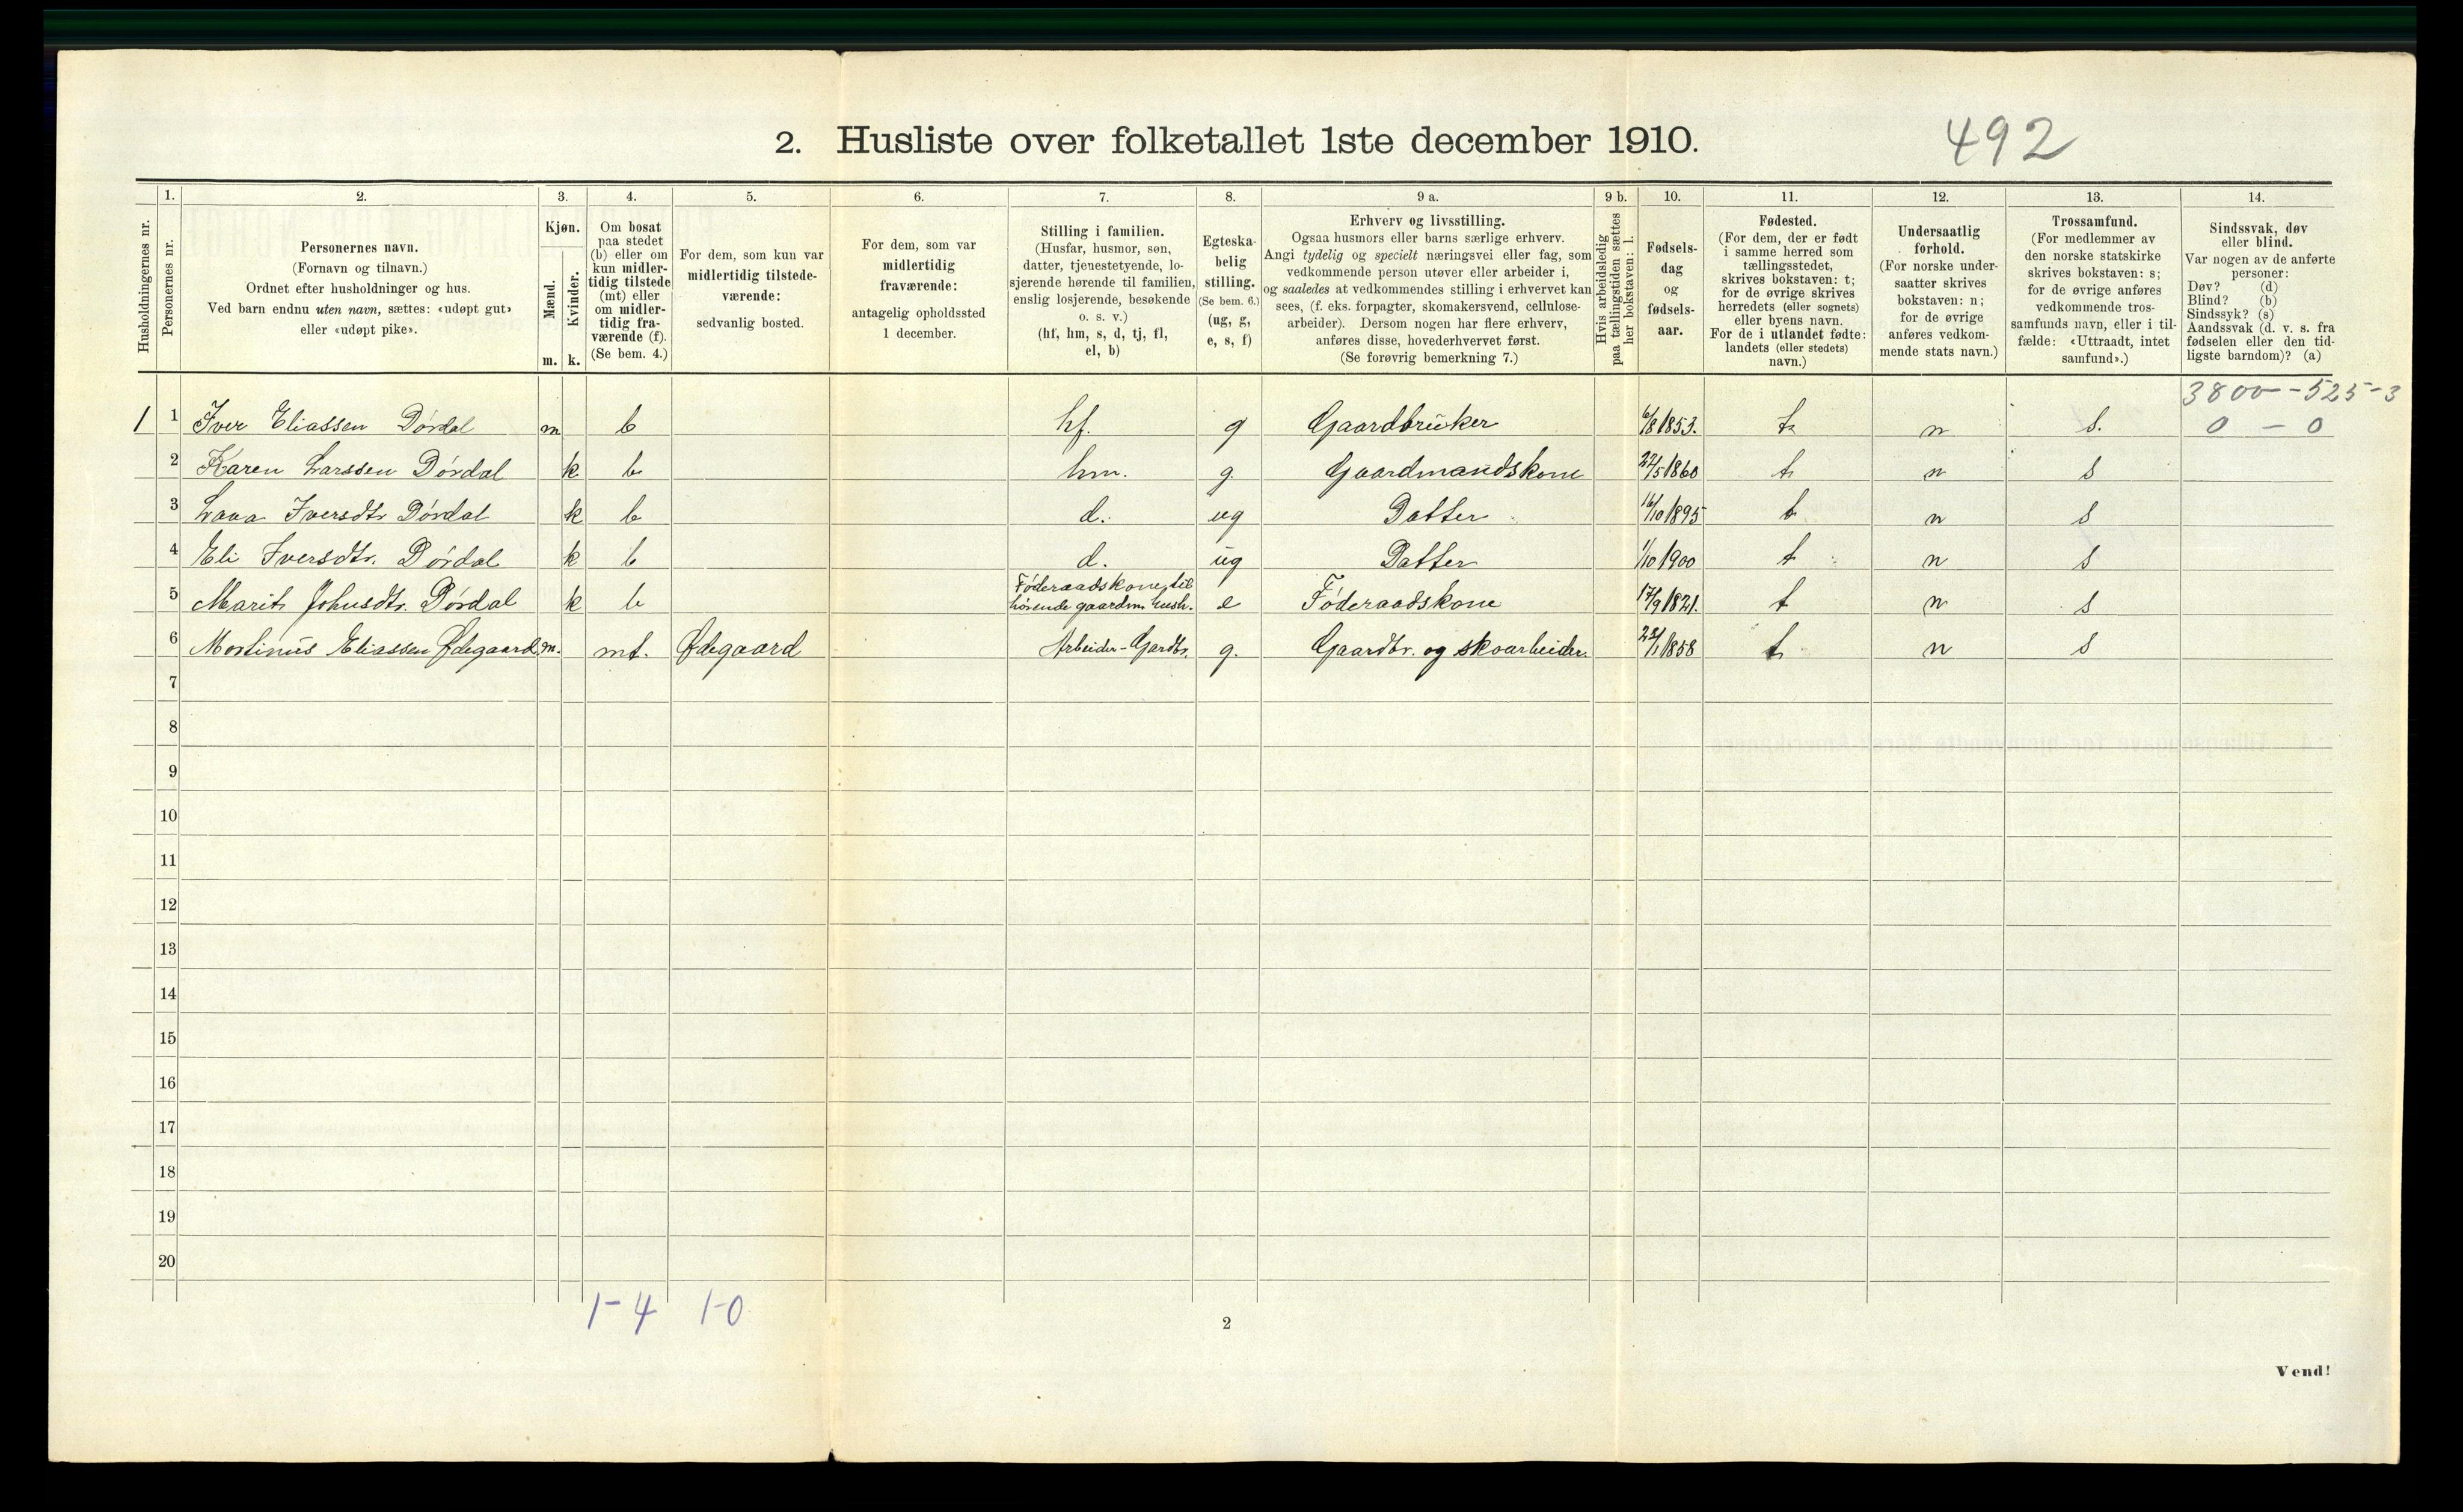 2. Husliste over folketallet 1ste december 1910.
492
Husholdningernes nr.
1.
Personernes nr.
2.
Personernes navn.
(Fornavn og tilnavn.)
Ordnet efter husholdninger og hus.
Ved barn endnu uten navn, sættes: «udøpt gut»
eller «udøpt pike».
3.
Kjøn.
Mænd.
Kvinder.
m. k.
4.
Om bosat
paa stedet
(b) eller om
kun midler-
tidig tilstede
(mt) eller
om midler-
tidig fra-
værende (f).
(Se bem. 4.)
5.
For dem, som kun var
midlertidig tilstede-
værende:
sedvanlig bosted.
6.
For dem, som var
midlertidig
fraværende:
antagelig opholdssted
1 december.
7.
Stilling i familien.
(Husfar, husmor, søn,
datter, tjenestetyende, lo-
sjerende hørende til familien,
enslig losjerende, besøkende
o. s. v.)
(hf, hm, s, d, tj, fl,
el, b)
8.
Egteska-
belig
stilling.
(Se bem. 6.)
(ug, g,
e, s, f)
9 a.
Erhverv og livsstilling.
Ogsaa husmors eller barns særlige erhverv.
Angi tydelig og specielt næringsvei eller fag, som
vedkommende person utøver eller arbeider i,
og saaledes at vedkommendes stilling i erhvervet kan
sees, (f. eks. forpagter, skomakersvend, cellulose-
arbeider). Dersom nogen har flere erhverv,
anføres disse, hovederhvervet først.
(Se forøvrig bemerkning 7.)
9 b.
Hvis arbeidsledig
paa tællingstiden sættes
her bokstaven: l.
10.
Fødsels-
dag
og
fødsels-
aar.
11.
Fødested.
(For dem, der er født
i samme herred som
tællingsstedet,
skrives bokstaven: t;
for de øvrige skrives
herredets (eller sognets)
eller byens navn.
For de i utlandet fødte:
landets (eller stedets)
navn.)
12.
Undersaatlig
forhold.
(For norske under-
saatter skrives
bokstaven: n;
for de øvrige
anføres vedkom-
mende stats navn.)
13.
Trossamfund.
(For medlemmer av
den norske statskirke
skrives bokstaven: s;
for de øvrige anføres
vedkommende tros-
samfunds navn, eller i til-
fælde: «Uttraadt, intet
samfund».)
14.
Sindssvak, døv
eller blind.
Var nogen av de anførte
personer:
Døv? (d)
Blind? (b)
Sindssyk? (s)
Aandssvak (d. v. s. fra
fødselen eller den tid-
ligste barndom)? (a)
3800-525-3
1 1 Iver Eliassen Dørdal m b hf. g Gaardbruker 6/8 1853. t n s. 0 - 0
2 Karen Larssen Dørdal k b hm. g. Gaardmandskone 22/5 1860 t n s
3 Lava Iversdtr Dørdal k b d. ug Datter 16/10 1895 t n s
4 Eli Iversdtr. Dørdal k b d. ug Datter 1/10 1900 t n s
5 Marit Johnsdtr. Dørdal k b Føderaadskone, til hørende gaardm. hush. e Føderaadskone 17/9 1821. t n s
6 Mortinus Eliassen Ødegaard m. mt. Ødegaard Arbeider-Gardbr. g. Gaardbr. og skoarbeider. 23/1 1858 t n s
7
8
9
10
11
12
13
14
15
16
17
18
19
20
1-4 1-0
2
Vend!